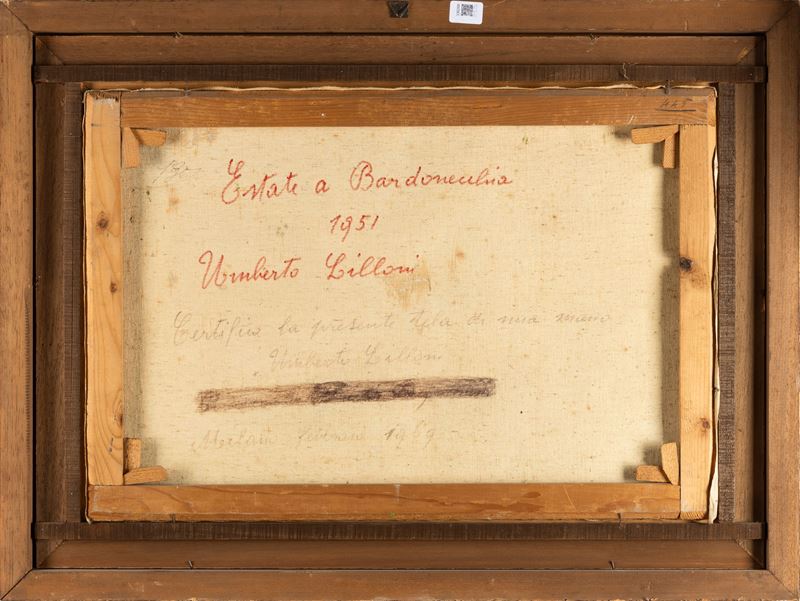 445
Estate a Bardonecchia
1951
Umberto Lilloni
Certifico la presente tela di mia mano
Umberto Lilloni
Milano 1969